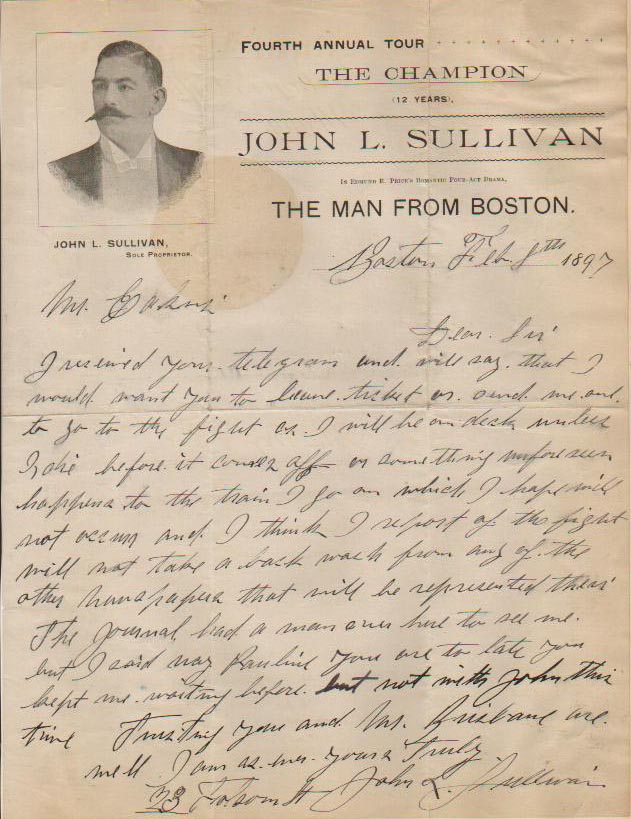 FOURTH ANNUAL TOUR
THE CHAMPION
(12 YEARS),
JOHN L. SULLIVAN
IN EDMUND E. PRICE'S ROMANTIC FOUR-ACT DRAMA,
THE MAN FROM BOSTON.
JOHN L. SULLIVAN,
SOLE PROPRIETOR.
Boston Feb. 8th 1897
Mr.
Dear. Sir
I received your telegram and. will say. that I
would want you to leave ticket or. send me one.
to go to the fight as. I will be on deck unless
I die before it comes off or something unforseen
happens to the train I go on which I hope will
not occur and. I think I report of the fight
will not take a back from any of. the
other newspapers that will be represented their
The Journal had a man over here to see me.
but I said nay Pauline you are to late you
kept me. waiting before. but not with John this
time Trusting you and Mr. Brisbane are.
well I am as. ever. yours Truly
John L. Sullivan
23 Folsom St